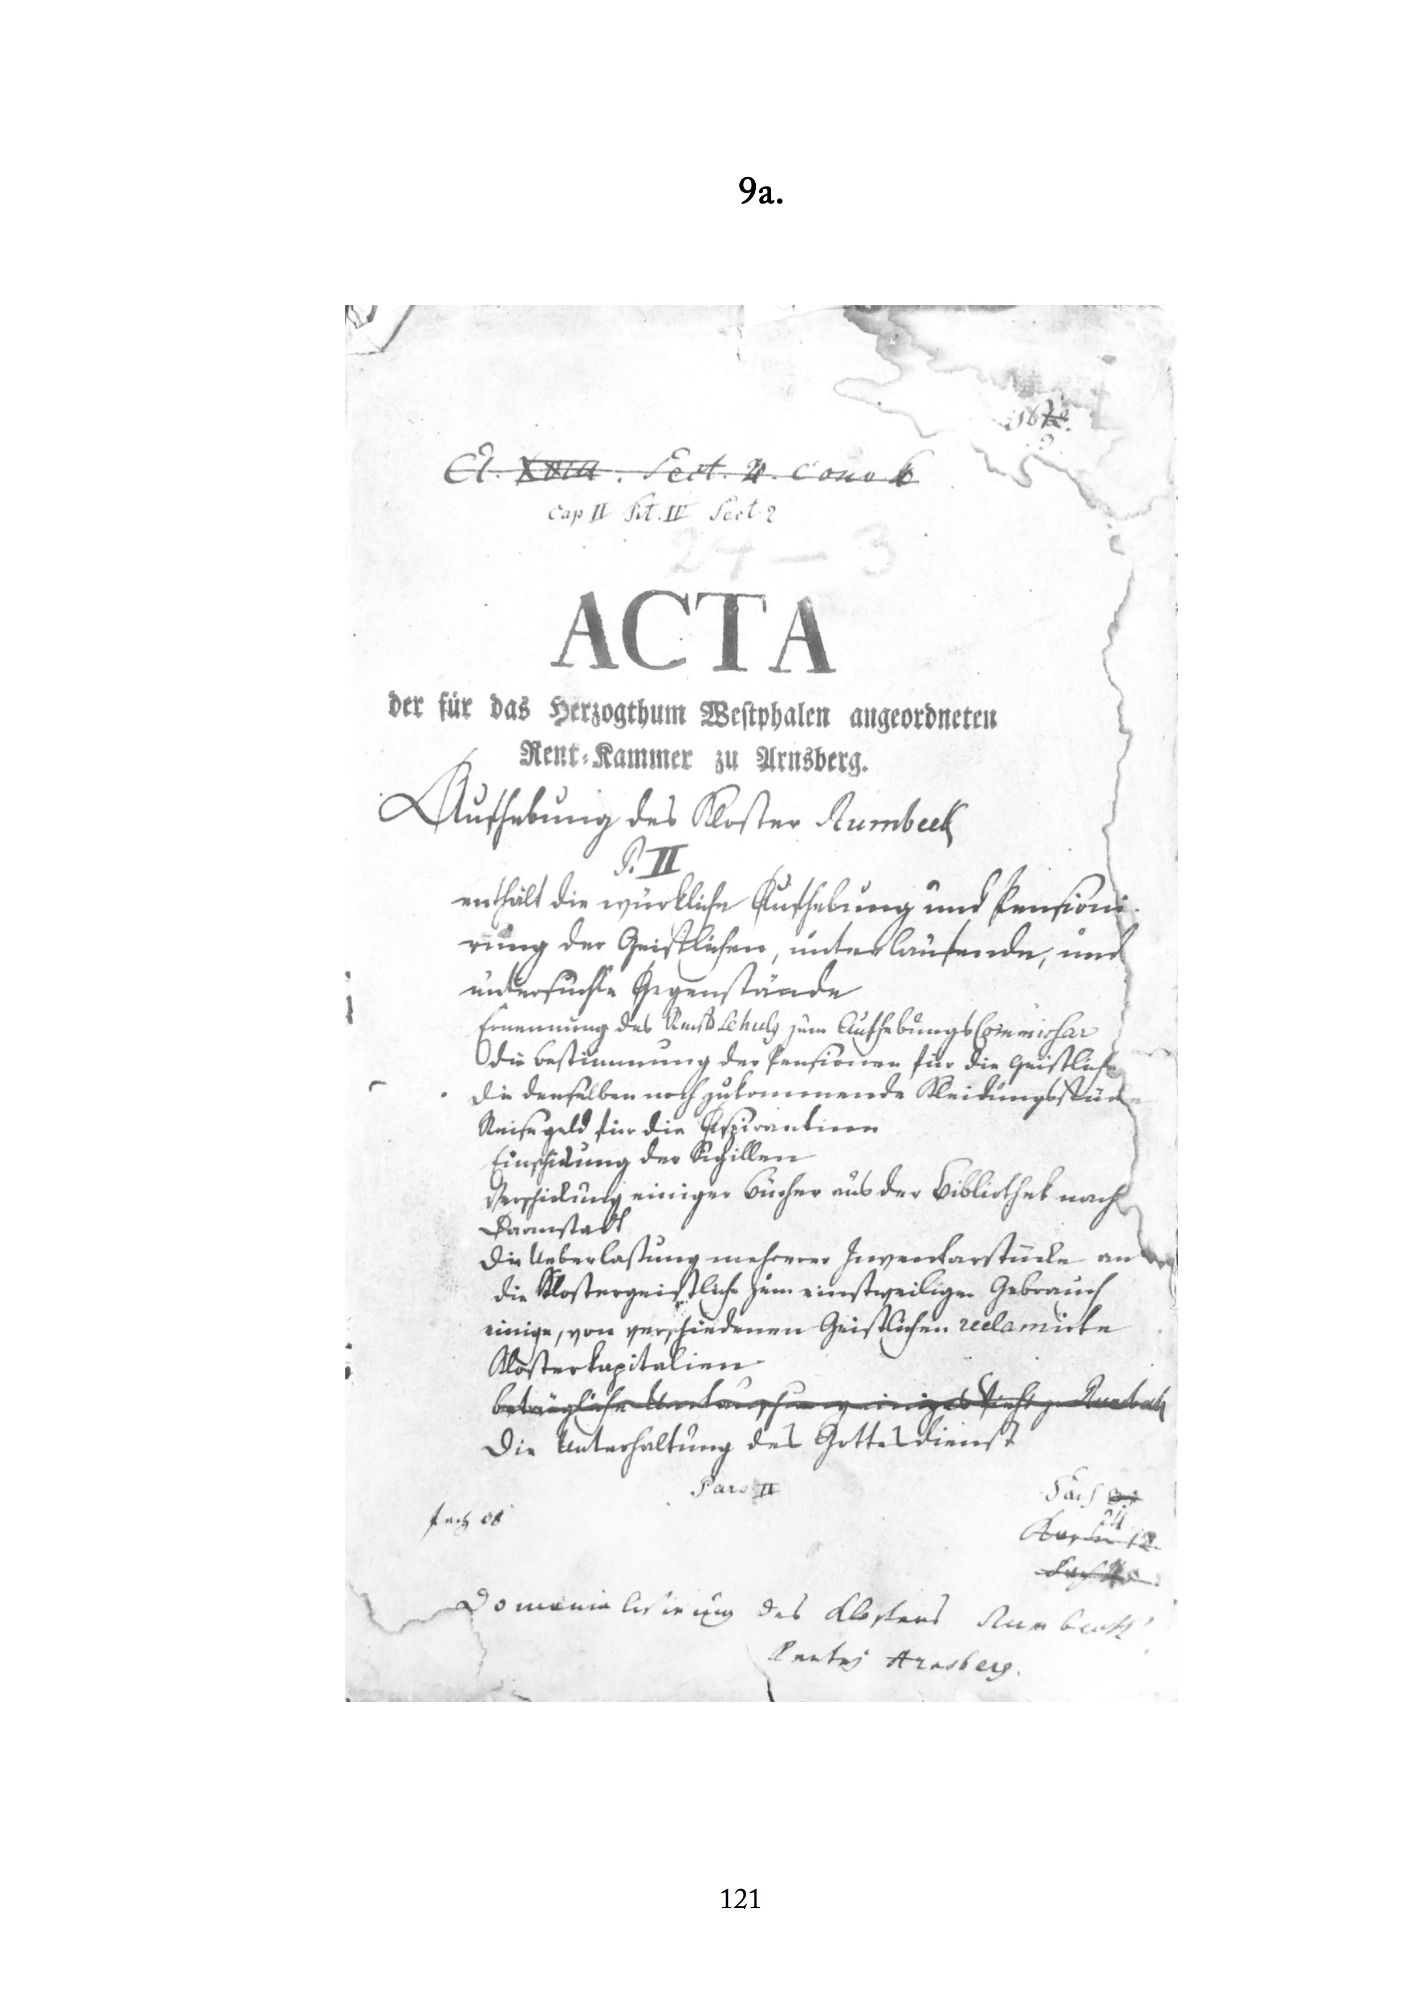 9a.
Cap II Sect. 2
24 – 3
ACTA
der für das Herzogthum Westphalen angeordneten
Rent-Kammer zu Arnsberg.
Aufhebung des Kloster Rumbeck
P. II
enthält die würkliche Aufhebung und Pensioni-
rung der Geistlichen, unterlaufende, und
untersuchte Gegenstände
Ernennung des zum Aufhebungs Commissar
Die bestimmung der Pensionen für die Geistliche
die denselben noch zukommende Kleidungsstücke
Reisegeld für die Aspirantinen
Einschickung der Sigillen
Verschickung einiger Bücher aus der Bibliothek nach
Darmstadt
Die Ueberlassung mehrerer Inventarstücke an
die Klostergeistliche zum einstweiligen Gebrauch
einige, von verschiedenen Geistlichen reclamirte
Klosterkapitalien
einiges Rumbeck
Die Unterhaltung des Gottesdienst
Pars II
Fach
24
12
Domanialisirung des Klosters Rumbeck
Rentei Arnsberg.
121